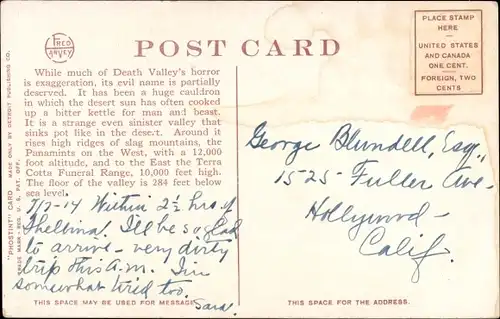 FRED
HARVEY
POST CARD
PLACE STAMP
HERE
UNITED STATES
AND CANADA
ONE CENT.
FOREIGN, TWO
CENTS
While much of Death Valley's horror
is exaggeration, its evil name is partially
deserved. It has been a huge cauldron
in which the desert sun has often cooked
up a bitter kettle for man and beast.
It is a strange even sinister valley that
sinks pot like in the desert. Around it
rises high ridges of slag mountains, the
Panamints on the West, with a 12,000
foot altitude, and to the East the Terra
Cotta Funeral Range, 10,000 feet high.
The floor of the valley is 284 feet below
sea level.
"PHOSTINT" CARD MADE ONLY BY DETROIT PUBLISHING CO.
TRADE MARK - REG. U. S. PAT. OFF.
7/2-14 Within 2½ hrs of
Shelbina. I'll be so glad
to arrive - very dirty
trip this A.M. I'm
somewhat tired too.
Sara.
George Blundell, Esq.,
1525 - Fuller Ave -
Hollywood -
Calif.
THIS SPACE MAY BE USED FOR MESSAGE
THIS SPACE FOR THE ADDRESS.